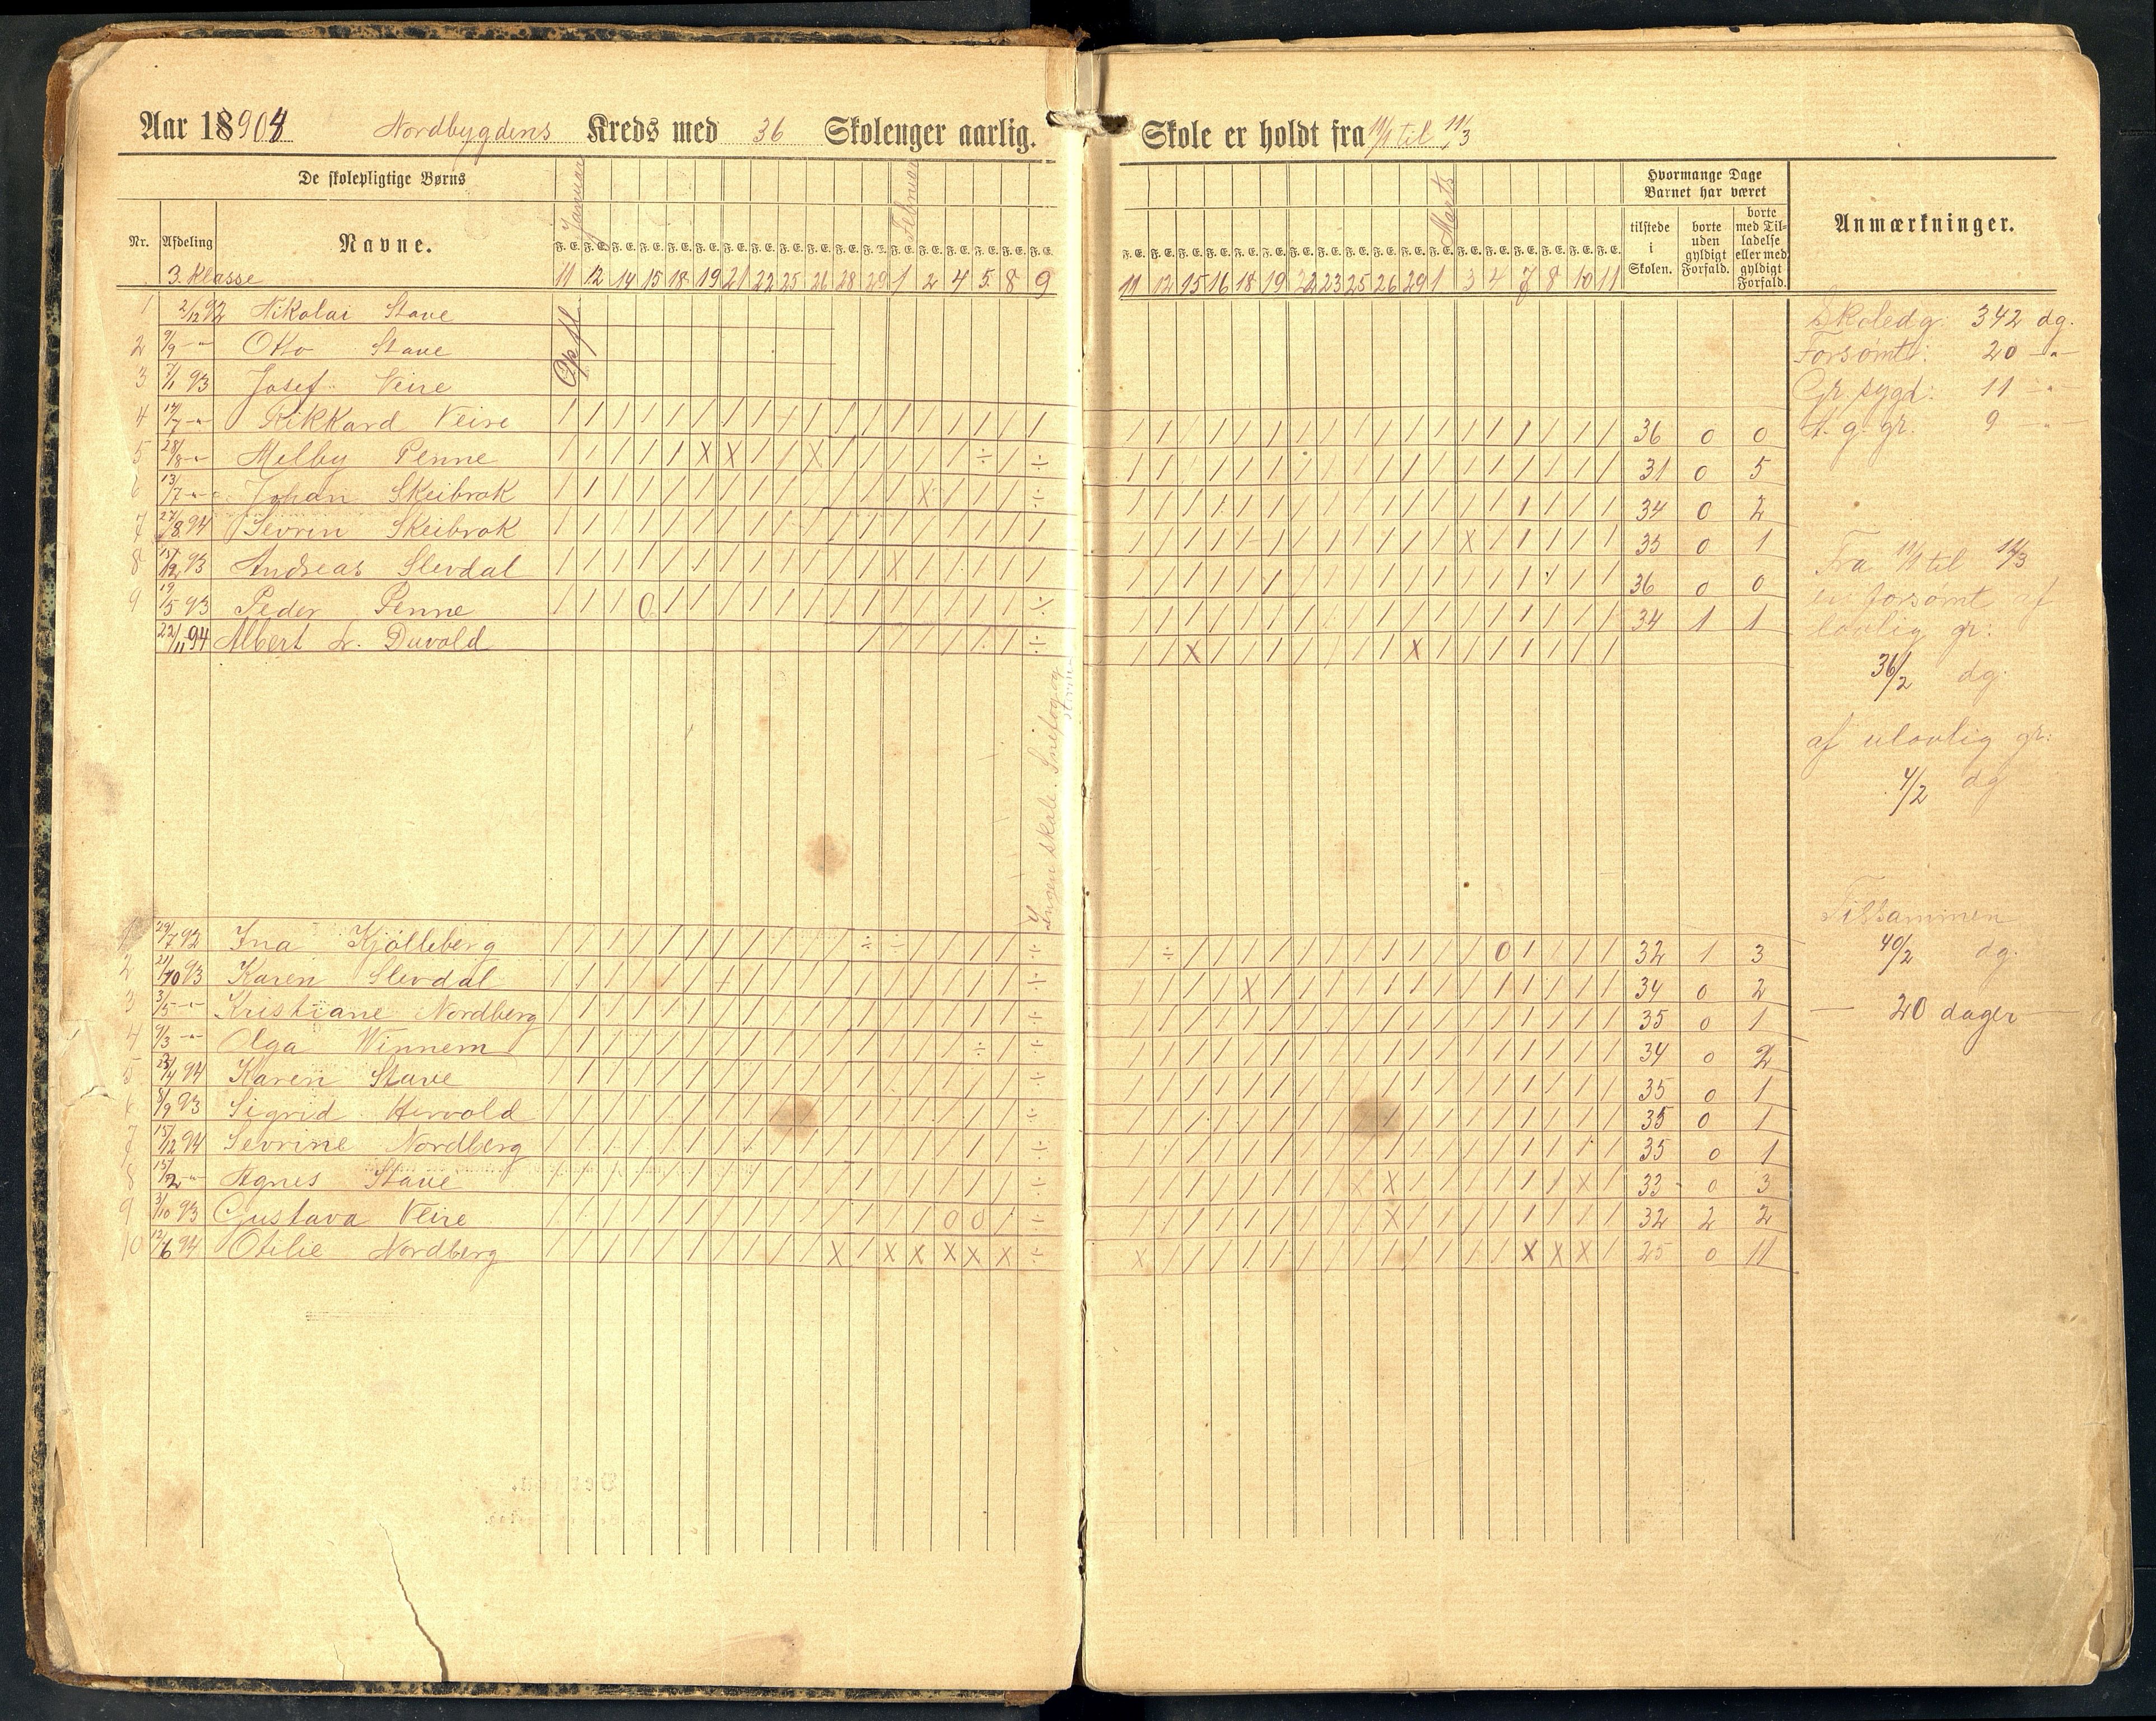 Aar 18904 Nordbygdens Kreds med 36 Skolenger aarlig. Skole er holdt fra 11/1 til 11/3
De skolepligtige Børns
Januar Februar Marts
Hvormange Dage Barnet har været
Nr. Afdeling Navne.
tilstede i Skolen.
borte uden gyldigt Forfald.
borte med Tilladelse eller med gyldigt Forfald.
Anmærkninger.
3. Klasse 11 12 14 15 18 19 21 22 25 26 28 29 1 2 4 5 8 9 11 12 15 16 18 19 22 23 25 26 29 1 3 4 7 8 10 11
1 2/12 92 Nikolai Stave Opfl.
2 9/9 -"- Otto Stave
3 7/1 93 Josef Veire
4 17/7 -"- Rikkard Veire 36 0 0
5 28/8 -"- Melby Penne 31 0 5
6 13/7 -"- Johan Skeibrok 34 0 2
7 27/8 94 Sevrin Skeibrok 35 0 1
8 15/12 93 Andreas Slevdal 36 0 0
9 19/5 93 Peder Penne 34 1 1
22/11 94 Albert L. Duvold
Ingen skole. Snefog og storm
1 29/7 92 Ina Kjölleberg 32 1 3
2 21/10 93 Karen Slevdal 34 0 2
3 3/5 -"- Kristiane Nordberg 35 0 1
4 9/3 -"- Olga Winnem 34 0 2
5 23/4 94 Karen Stave 35 0 1
6 8/9 93 Sigrid Hervold 35 0 1
7 15/12 94 Sevrine Nordberg 35 0 1
8 15/2 -"- Agnes Stave 33 0 3
9 3/10 93 Gustava Veire 32 2 2
10 12/6 94 Otilie Nordberg 25 0 11
Skoledg. 342 dg.
Forsømt: 20 -"-
Gr. sygd: 11 -"-
A. g. gr. 9 -"-
Fra 11/1 til 11/3
er forsømt af
lovlig gr:
36/2 dg.
af ulovlig gr:
4/2 dg
Tilsammen
40/2 dg.
— 20 dager —